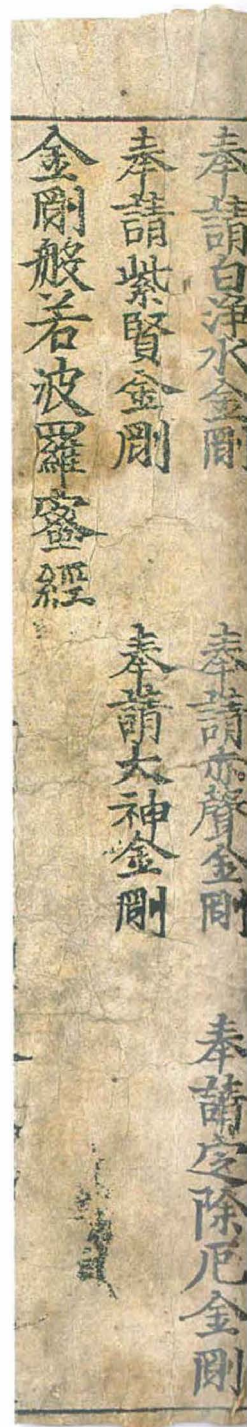 奉請白淨水金剛 奉請赤聲金剛 奉請定除厄金剛
奉請紫賢金剛 奉請大神金剛
金剛般若波羅蜜經